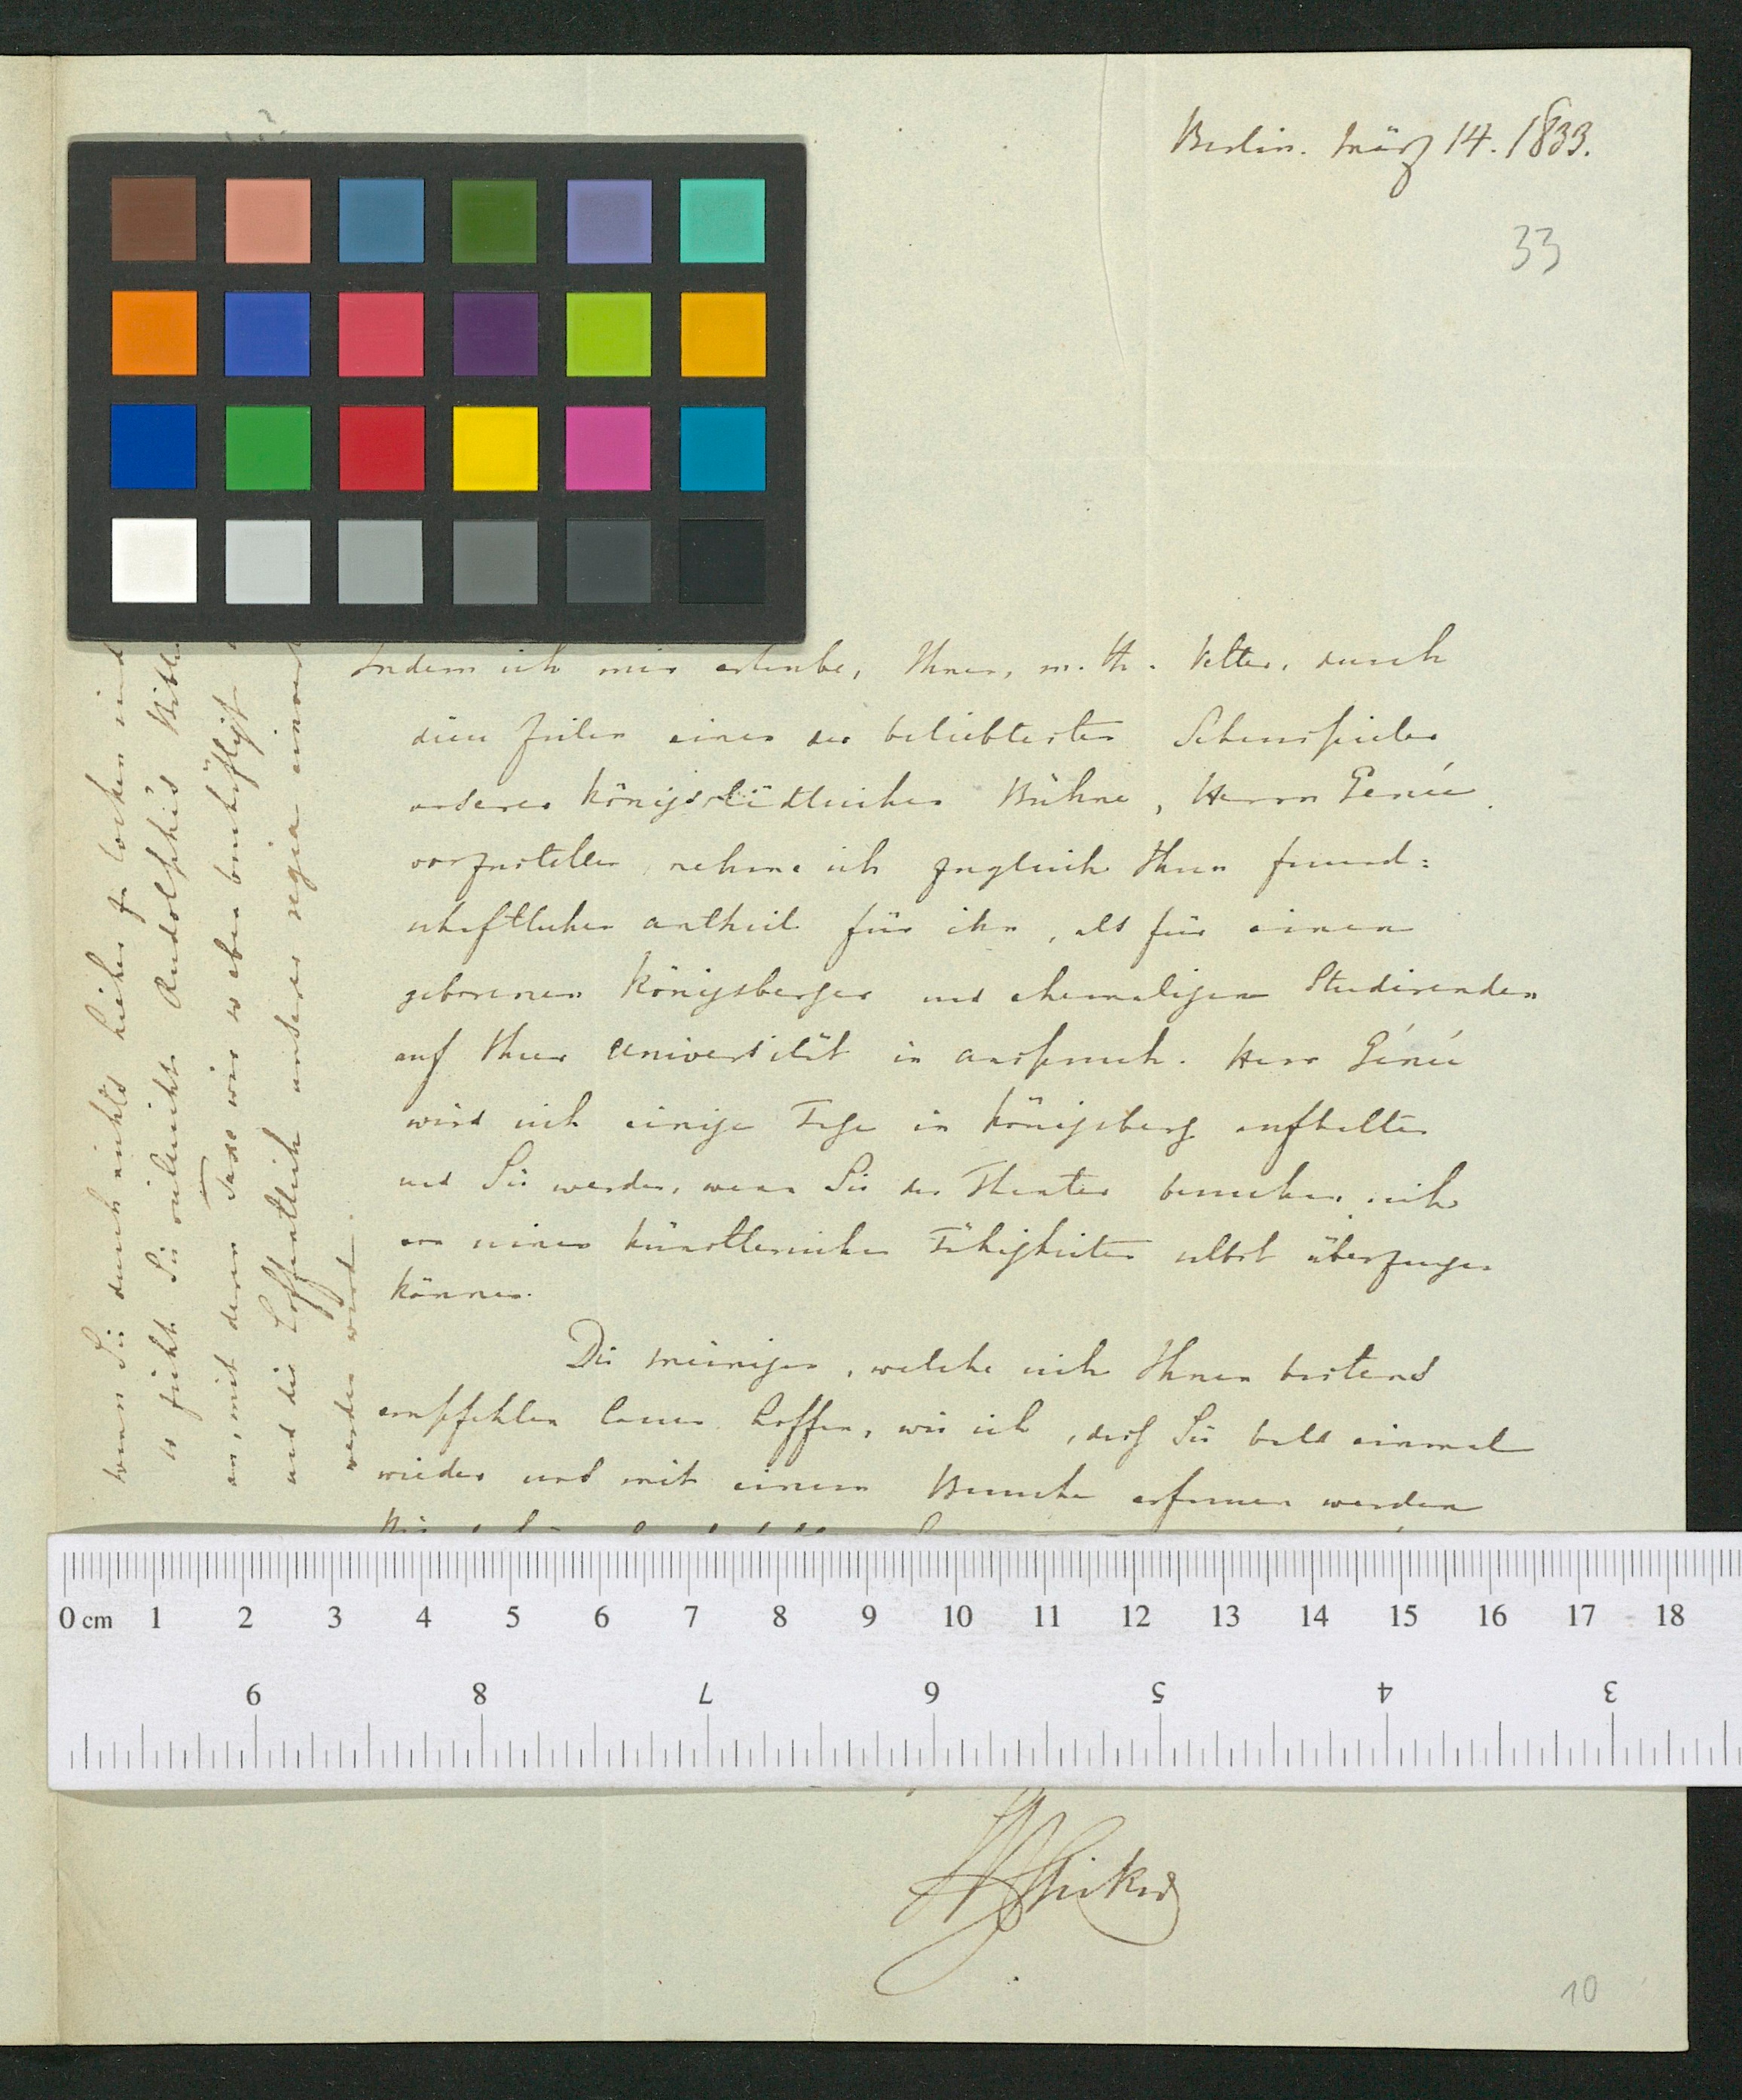 Berlin. März 14. 1833.
33
Indem ich mir erlaube, Ihnen, m. th. Vetter, durch
diese Zeilen einen der beliebtesten Schauspieler
unserer Königsstädtischen Bühne, Herrn Genée
vorzustellen, nehme ich zugleich Ihren freund=
schaftlichen Antheil für ihn, als für einen
geborenen Königsberger und ehemaligen Studirenden
auf Ihrer Universität in Anspruch. Herr Genée
wird sich einige Tage in Königsberg aufhalten
und Sie werden, wenn Sie das Theater besuchen, sich
von seinen künstlerischen Fähigkeiten selbst überzeugen
können.
Die Meinigen, welche sich Ihnen bestens
empfehlen lassen hoffen, wie ich, daß Sie bald einmal
wieder uns mit einem Besuche erfreuen werden
wenn Sie durch nichts hieher zu locken sind
so zieht Sie vielleicht Rudolphis
an, mit deren wir so eben beschäftigt
und die hoffentlich unserer regia
werden wird.
0 cm 1 2 3 4 5 6 7 8 9 10 11 12 13 14 15 16 17 18
9 8 7 6 5 4 3
Spiker
10